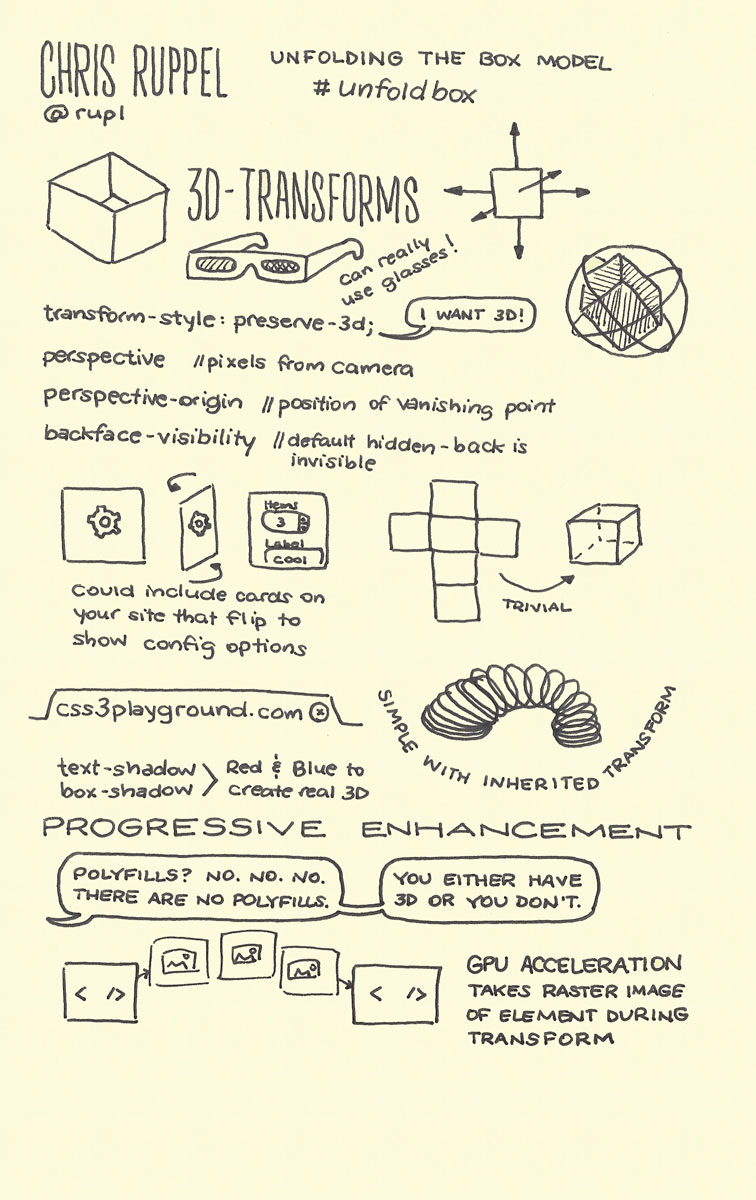 CHRIS RUPPEL
@rupl
UNFOLDING THE BOX MODEL
#unfoldbox
3D-TRANSFORMS
can really
use glasses!
transform-style: preserve-3d;
I WANT 3D!
perspective //pixels from camera
perspective-origin //position of vanishing point
backface-visibility //default hidden-back is
invisible
Items
3
Label
COOl
Could include cards on
your site that flip to
show config options
TRIVIAL
css3playground.com
SIMPLE WITH INHERITED TRANSFORM
text-shadow
box-shadow
Red & Blue to
create real 3D
PROGRESSIVE ENHANCEMENT
POLYFILLS? NO. NO. NO.
THERE ARE NO POLYFILLS.
YOU EITHER HAVE
3D OR YOU DON'T.
< />
< />
GPU ACCELERATION
TAKES RASTER IMAGE
OF ELEMENT DURING
TRANSFORM